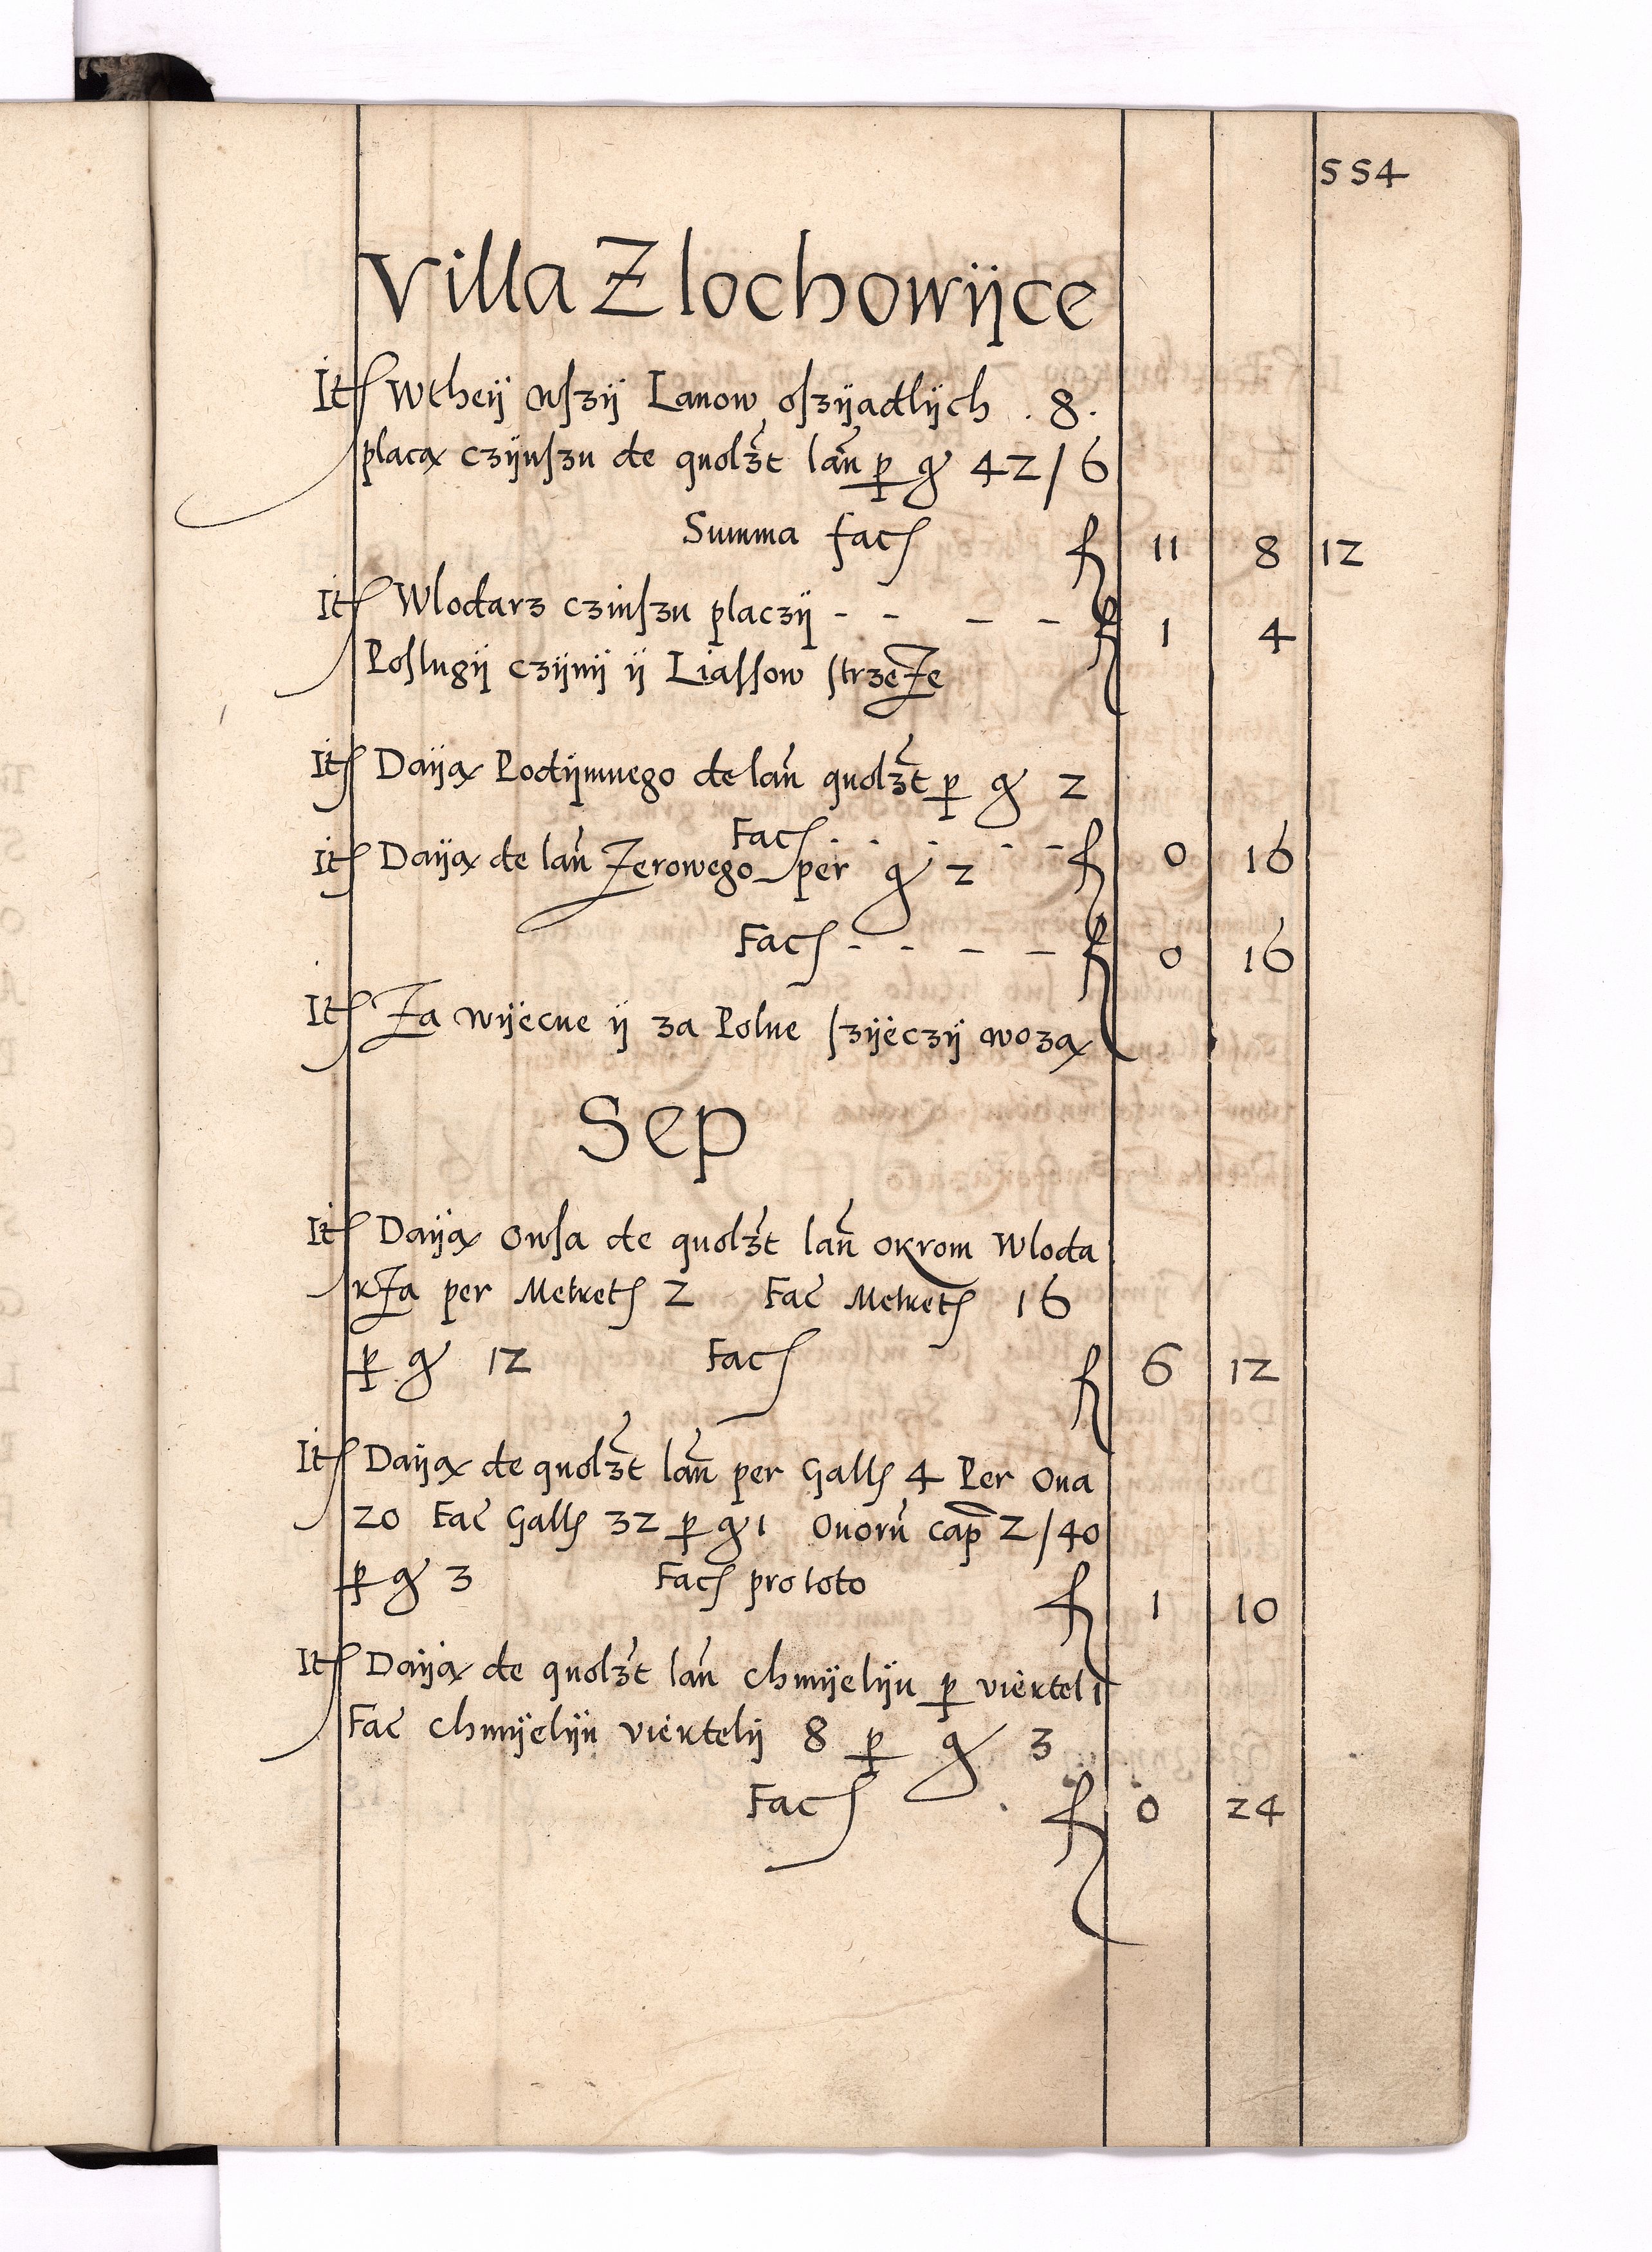 554
Villa Zlochowijce
Itꝭ Wtheij wſzij Lanow oſzijadlijch . 8.
placą czijnſzu de quolzt lan̄ ꝑ gꝭ 42/6
Summa facꝭ fl 11 8 12
Itꝭ Wlodarz czinſzu placzij - - - - fl 1 4
Poſlugij czijnij ij Liaſſow ſtrzeże
Itꝭ Daiją Podijmnego de lan̄ quolzt ꝑ gꝭ 2
Facꝭ - - - - fl 0 16
Itꝭ Daiją de lan̄ Żerowego per gꝭ 2
Facꝭ - - - - fl 0 16
Itꝭ Za wijecne ij za Polne ſzijeczij wozą
Sep
Itꝭ Daiją Owſa de quolzt lan̄ okrom Wloda
rża per Metretꝭ 2 Fac̄ Metretꝭ 16
ꝑ gꝭ 12 Facꝭ fl 6 12
Itꝭ Daiją de quolzt lan̄ per Gallꝭ 4 Per Oua
20 Fac̄ Gallꝭ 32 ꝑ gꝭ 1 Ouorū cap̄ 2/40
ꝑ gꝭ 3 Facꝭ pro toto fl 1 10
Itꝭ Daiją de quolzt lan̄ chmijeliju ꝑ viertel 1
Fac̄ chmijelijn viertelij 8 ꝑ gꝭ 3
Facꝭ fl 0 24